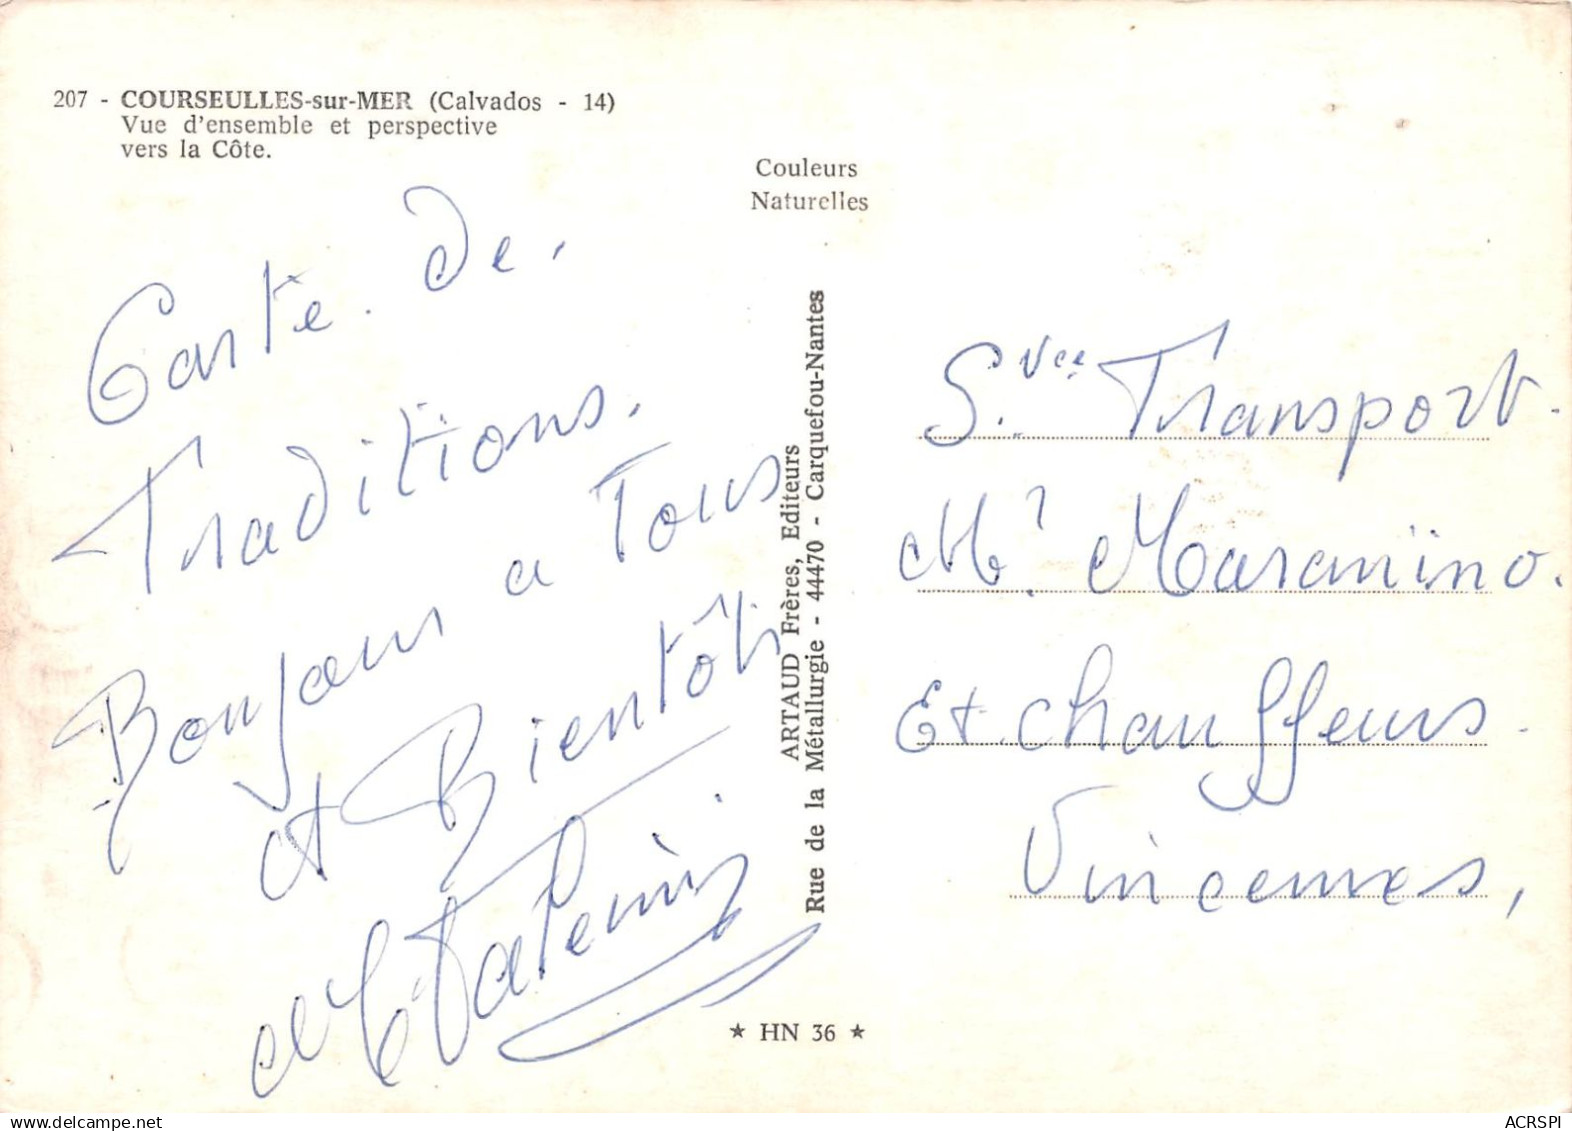 207 - COURSEULLES-sur-MER (Calvados - 14)
Vue d'ensemble et perspective
vers la Côte.
Couleurs
Naturelles
Carte de.
Traditions.
Bonjour a Tous
et Bientôt
ARTAUD Frères, Editeurs
Rue de la Métallurgie - 44470 - Carquefou-Nantes
★ HN 36 ★
Svce Transport.
Mr Maranino.
Et Chauffeurs.
Vincennes,
ACRSPI